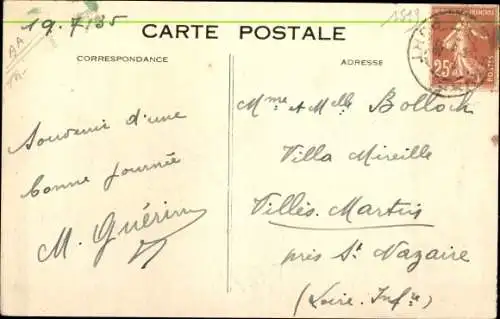 19.7/35
CARTE POSTALE
CORRESPONDANCE
ADRESSE
25
Souvenir d'une
bonne journée
M. Guérin
Mme et Melle Bolloch
Villa Mireille
Villès-Martin
près St Nazaire
(Loire Infre)